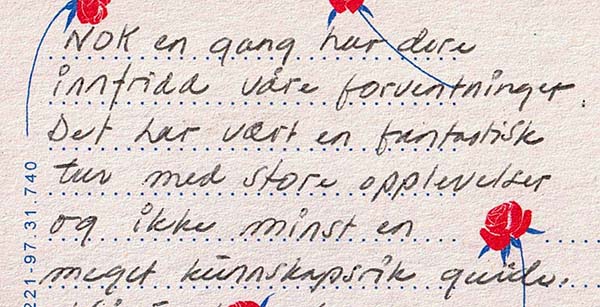 NOK en gang har dere
innfridd våre forventninger.
Det har vært en fantastisk
tur med store opplevelser
og ikke minst en
meget kunnskapsrik guide.
221-97.31.740